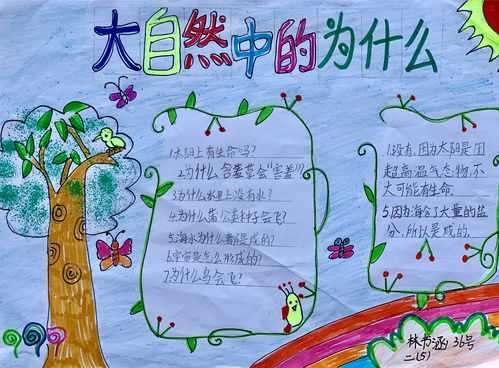 大自然中的为什么
1.太阳上有生命吗?
2.为什么含羞草会"害羞"?
3.为什么水里上没有水?
4.为什么蒲公英种子会飞?
5.海水为什么都是咸的?
6.宇宙是怎么形成的?
7.为什么鸟会飞?
1.没有,因为太阳是团
超高温气态物,不
大可能有生命
5.因为海含了大量的盐
分,所以是咸的
林书涵 36号
二(5)